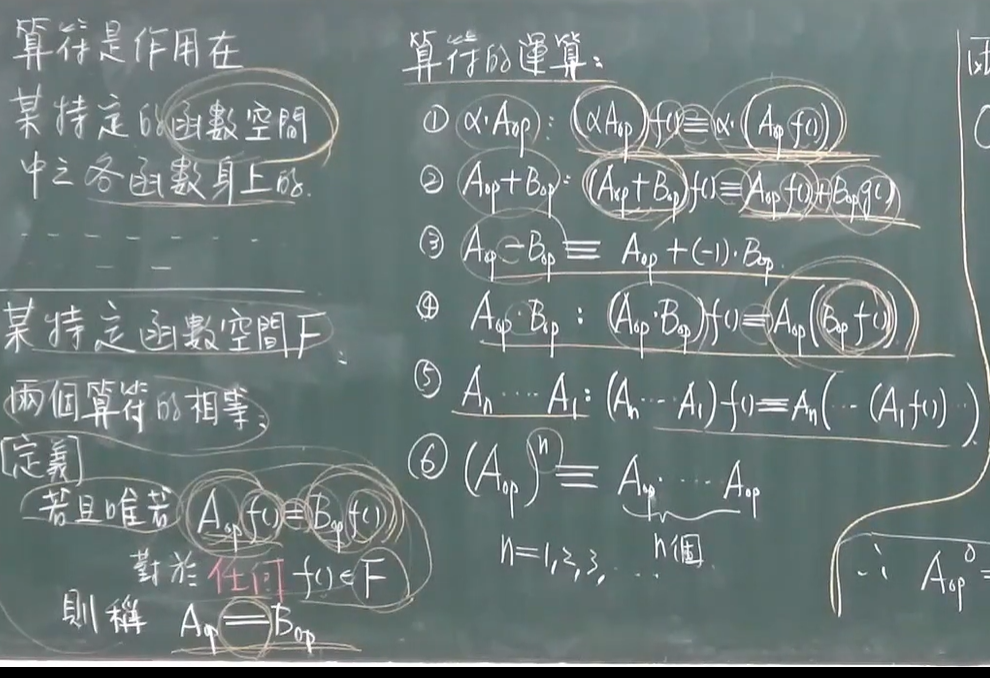 算符是作用在
某特定的函數空間
中之各函數身上的.
某特定函數空間F:
兩個算符的相等:
[定義]
若且唯若 A_op f() = B_op f()
對於任何 f() ∈ F
則稱 A_op = B_op
算符的運算:
① α·A_op : (αA_op)f() ≡ α·(A_op f())
② A_op + B_op : (A_op + B_op)f() ≡ A_op f() + B_op g()
③ A_op − B_op ≡ A_op + (-1)·B_op.
④ A_op·B_op : (A_op·B_op)f() ≡ A_op(B_op f())
⑤ A_n ⋯ A_1 : (A_n ⋯ A_1)f() ≡ A_n(⋯(A_1 f())⋯)
⑥ (A_op)^n ≡ A_op ⋯ A_op
n個
n=1,2,3,⋯
∴ A_op^0 =